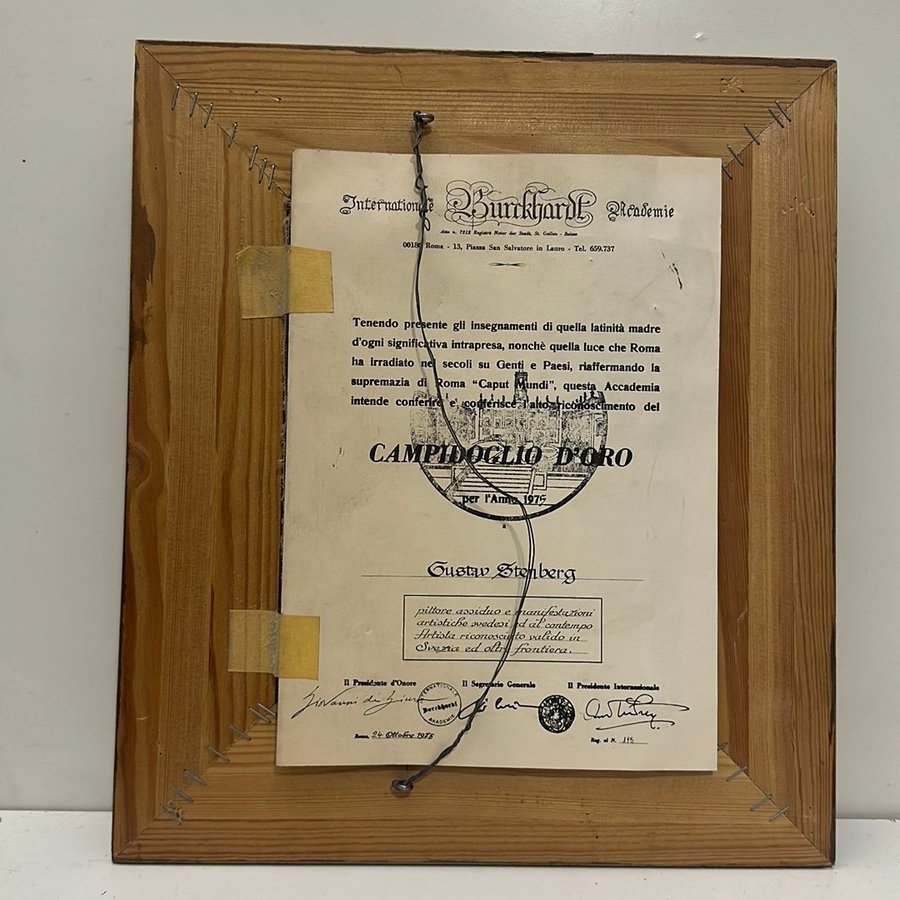 Internationale Burckhardt Akademie
Atto n. 7312 Registro Notar der Stadt, St. Gallen - Suisse
00186 Roma - 13, Piazza San Salvatore in Lauro - Tel. 659.737
Tenendo presente gli insegnamenti di quella latinità madre
d'ogni significativa intrapresa, nonchè quella luce che Roma
ha irradiato nei secoli su Genti e Paesi, riaffermando la
supremazia di Roma "Caput Mundi", questa Accademia
intende conferire e conferisce l'alto riconoscimento del
CAMPIDOGLIO D'ORO
per l'Anno 1975
a
Gustav Stenberg
pittore assiduo e manifestazioni
artistiche svedesi ed al contempo
Artista riconosciuto valido in
Svezia ed oltre frontiera.
Il Presidente d'Onore Il Segretario Generale Il Presidente Internazionale
INTERNATIONALE Burckhardt AKADEMIE
Roma, 24 Ottobre 1975 Reg. al N. 115